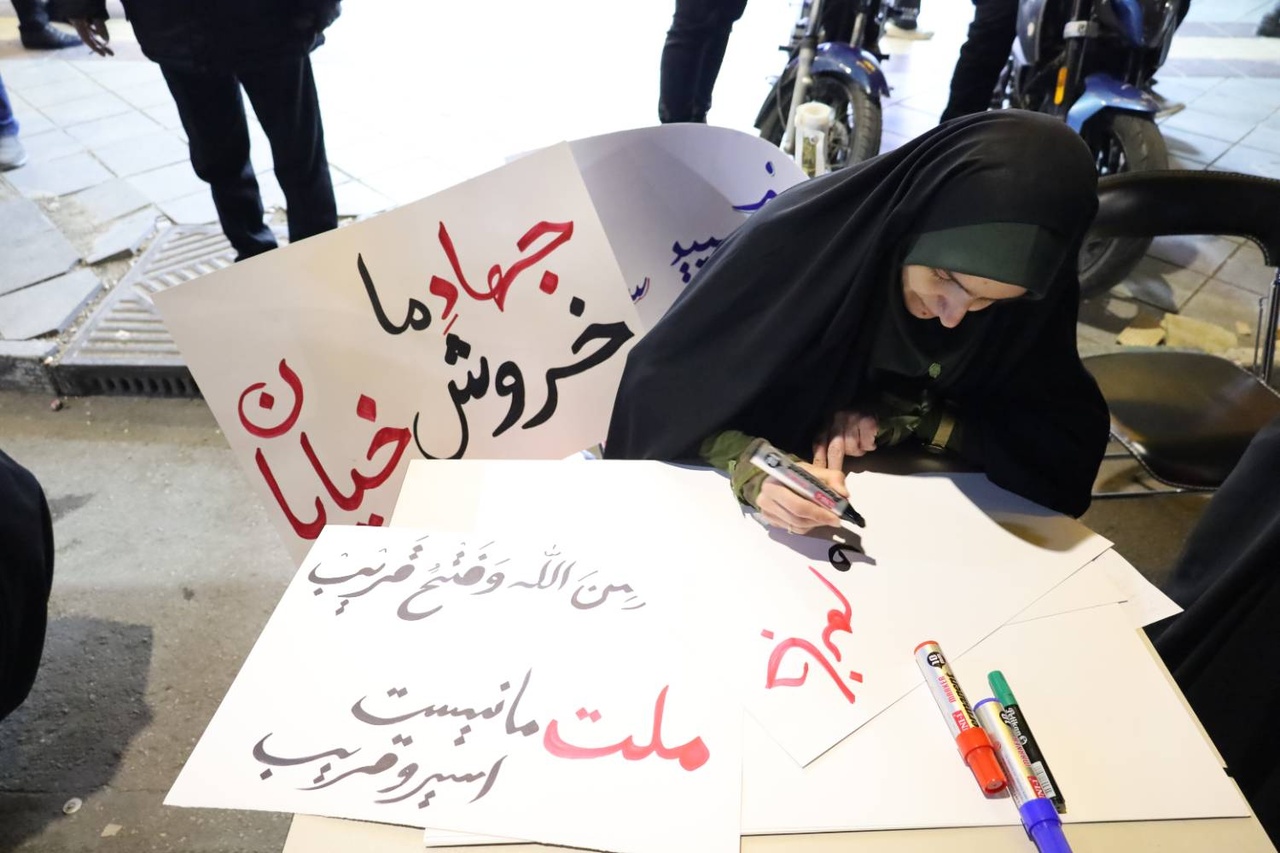 جهادِ ما
خروشِ
خیابان
مِنَ اللّه وَفَتْحٌ قَریْب
ملت ما نیست
اسیر و قریب
MARKER